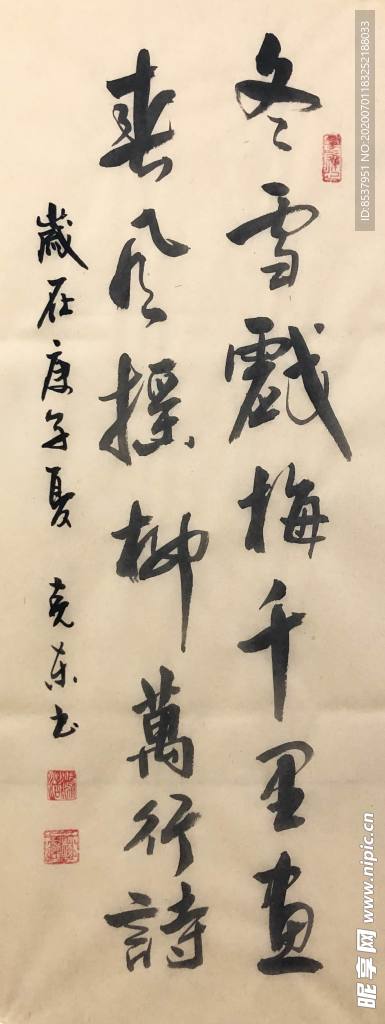 冬雪戲梅千里畫
春風摇柳萬行詩
歲在庚子夏 克東书
ID:8537951 NO:20200701183252188033
昵享网 www.nipic.cn